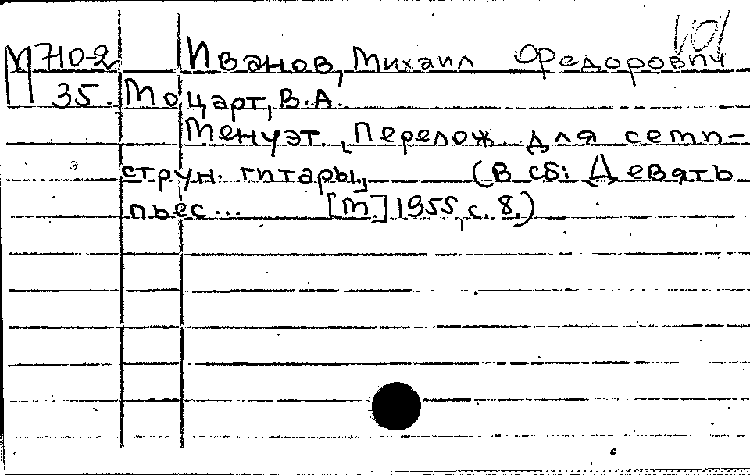 М 710-2 Иванов, Михаил Федорович
35. Моцарт, В.А.
Менуэт. [Перелож. для семи-
струн. гитары.] (В сб: Девять
пьес... [М.] 1955, с. 8.)